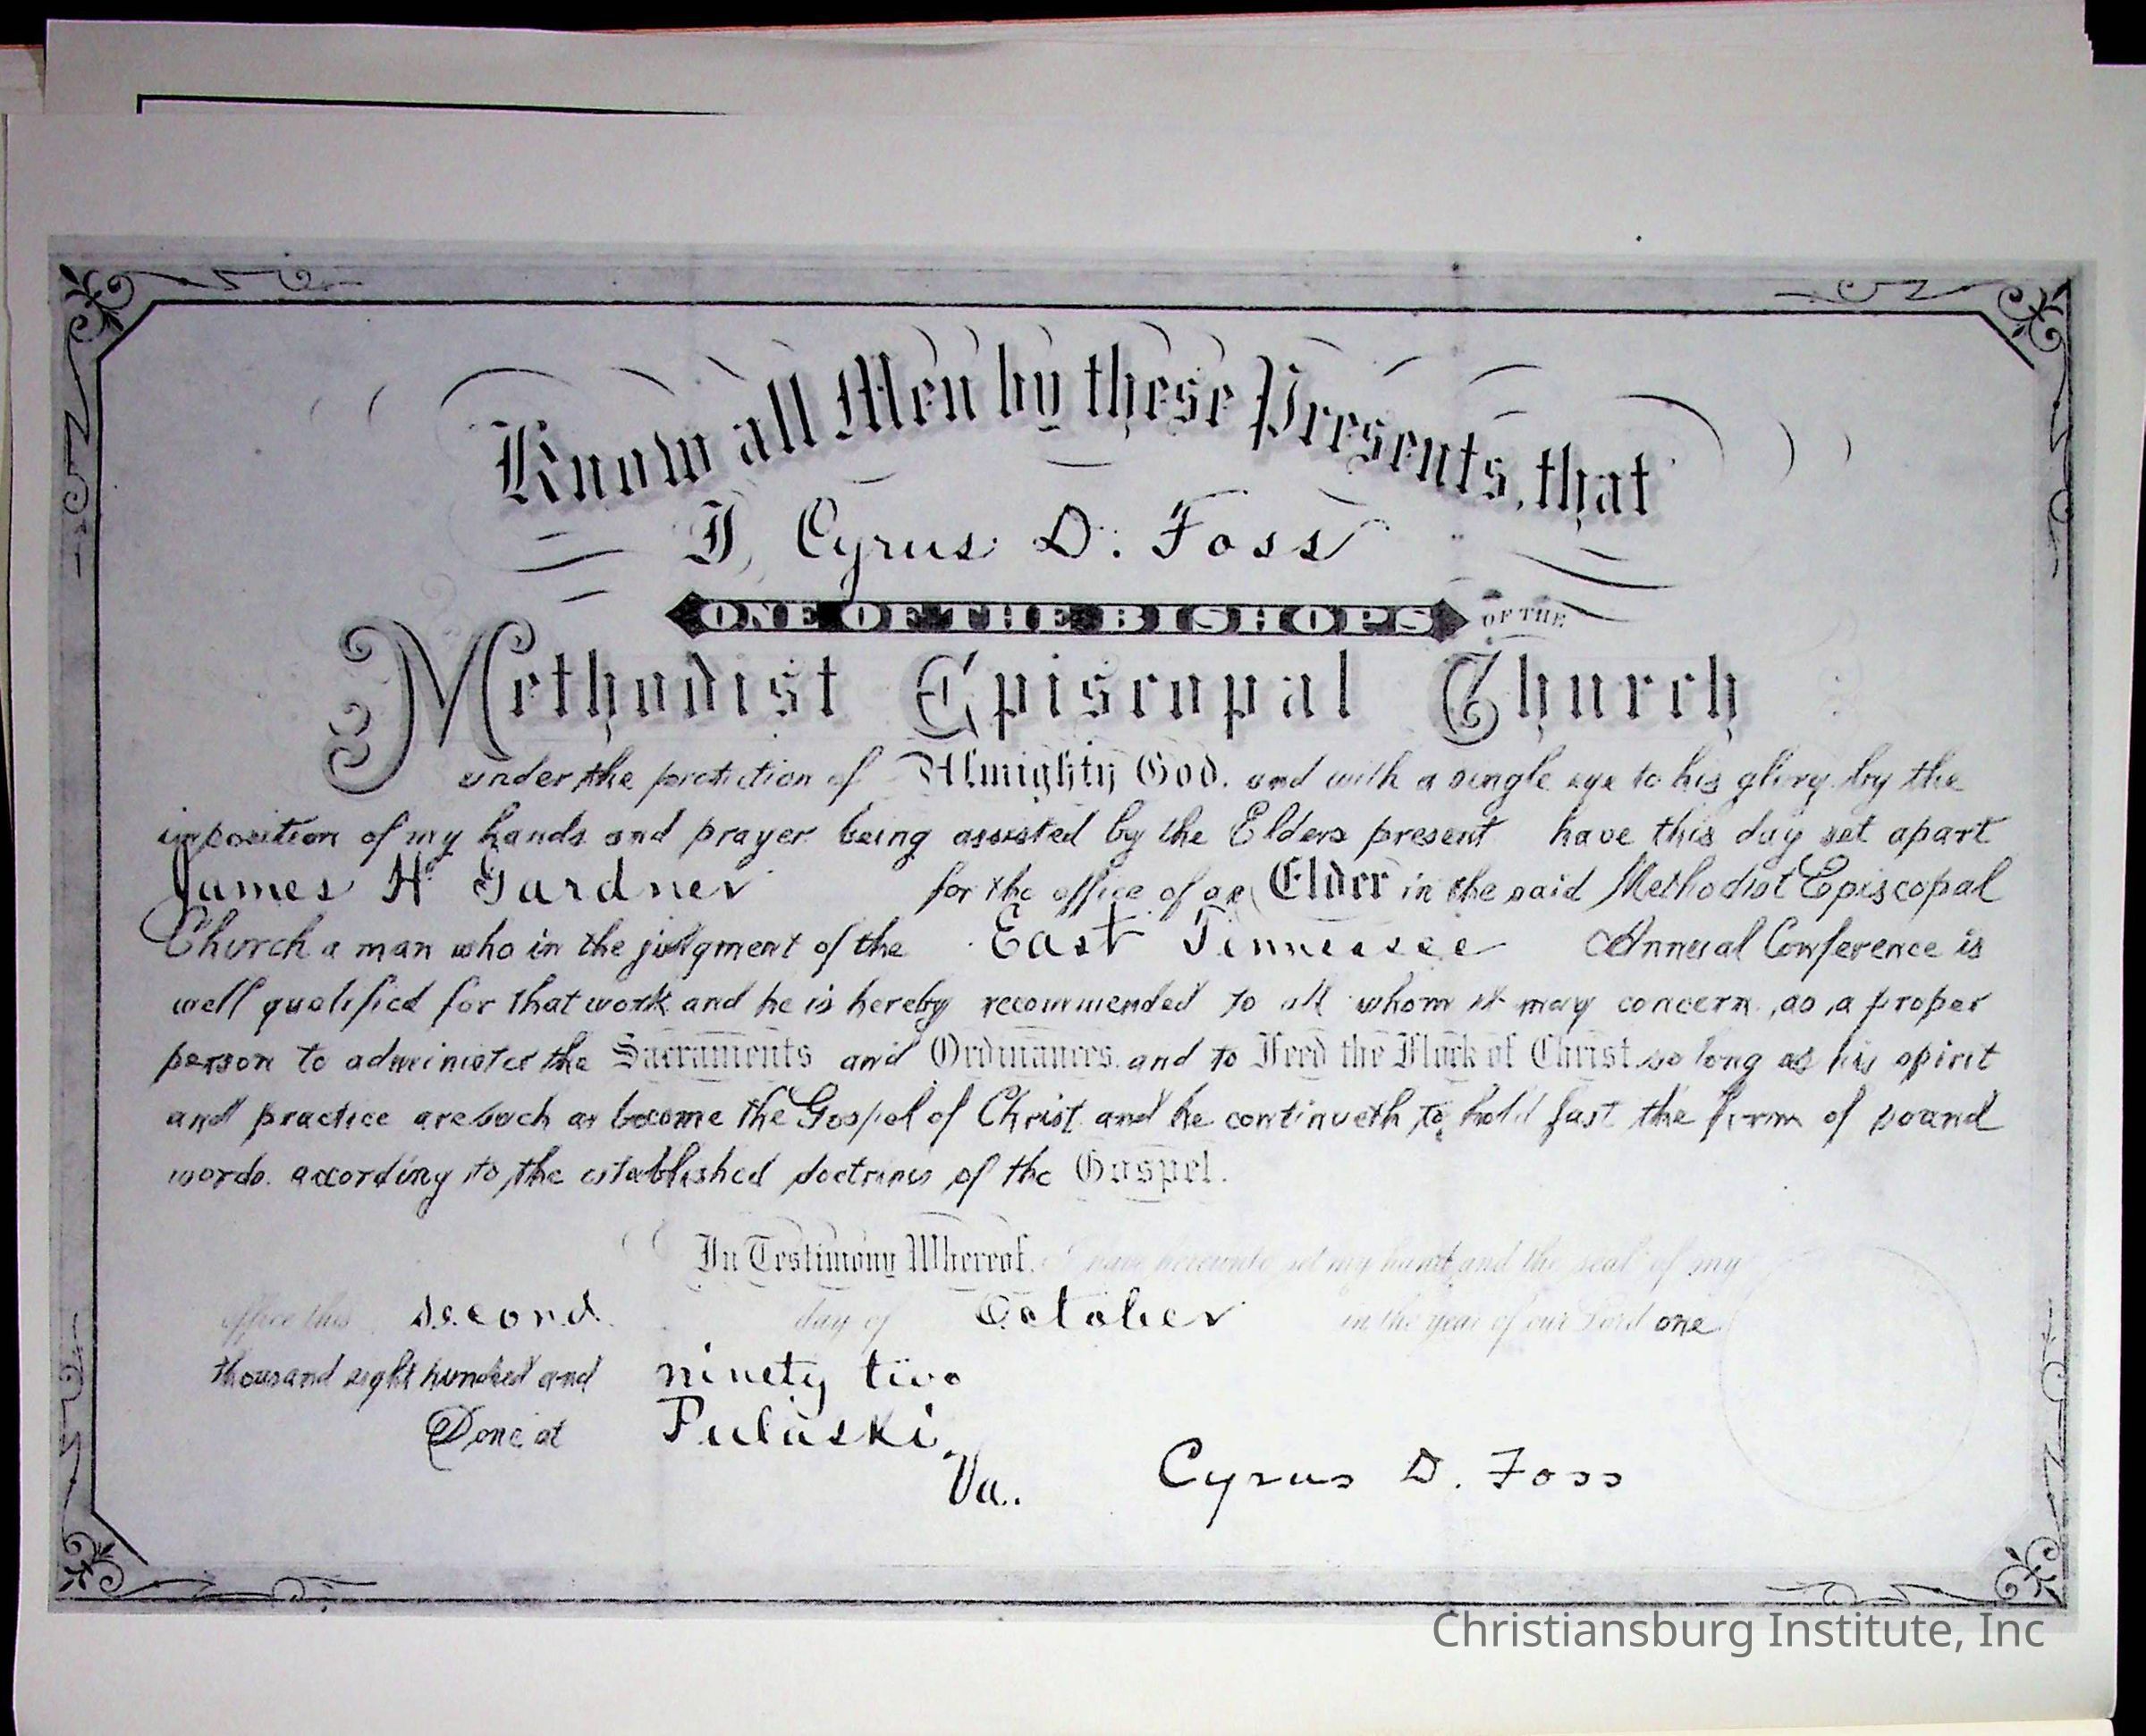 Know all Men by these Presents, that
I, Cyrus D. Foss
ONE OF THE BISHOPS OF THE
Methodist Episcopal Church
under the protection of Almighty God. and with a single eye to his glory by the
imposition of my hands and prayer being assisted by the Elders present have this day set apart
James H Gardner for the office of an Elder in the said Methodist Episcopal
Church a man who in the judgment of the East Tennessee Annual Conference is
well qualified for that work and he is hereby recommended to all whom it may concern, as a proper
person to administer the Sacraments and Ordinances. and to Feed the Flock of Christ. so long as his spirit
and practice are such as become the Gospel of Christ and he continueth to hold fast the form of sound
words. according to the established doctrines of the Gospel.
In Testimony Whereof. I have hereunto set my hand and the seal of my
office this second day of October in the year of our Lord one
thousand eight hundred and ninety two
Done at Pulaski,
Va.. Cyrus D. Foss
Christiansburg Institute, Inc